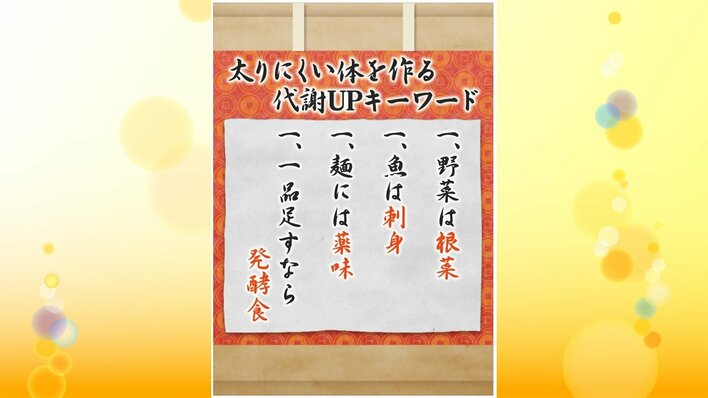 太りにくい体を作る
代謝UPキーワード
一、野菜は根菜
一、魚は刺身
一、麺には薬味
一、一品足すなら
発酵食